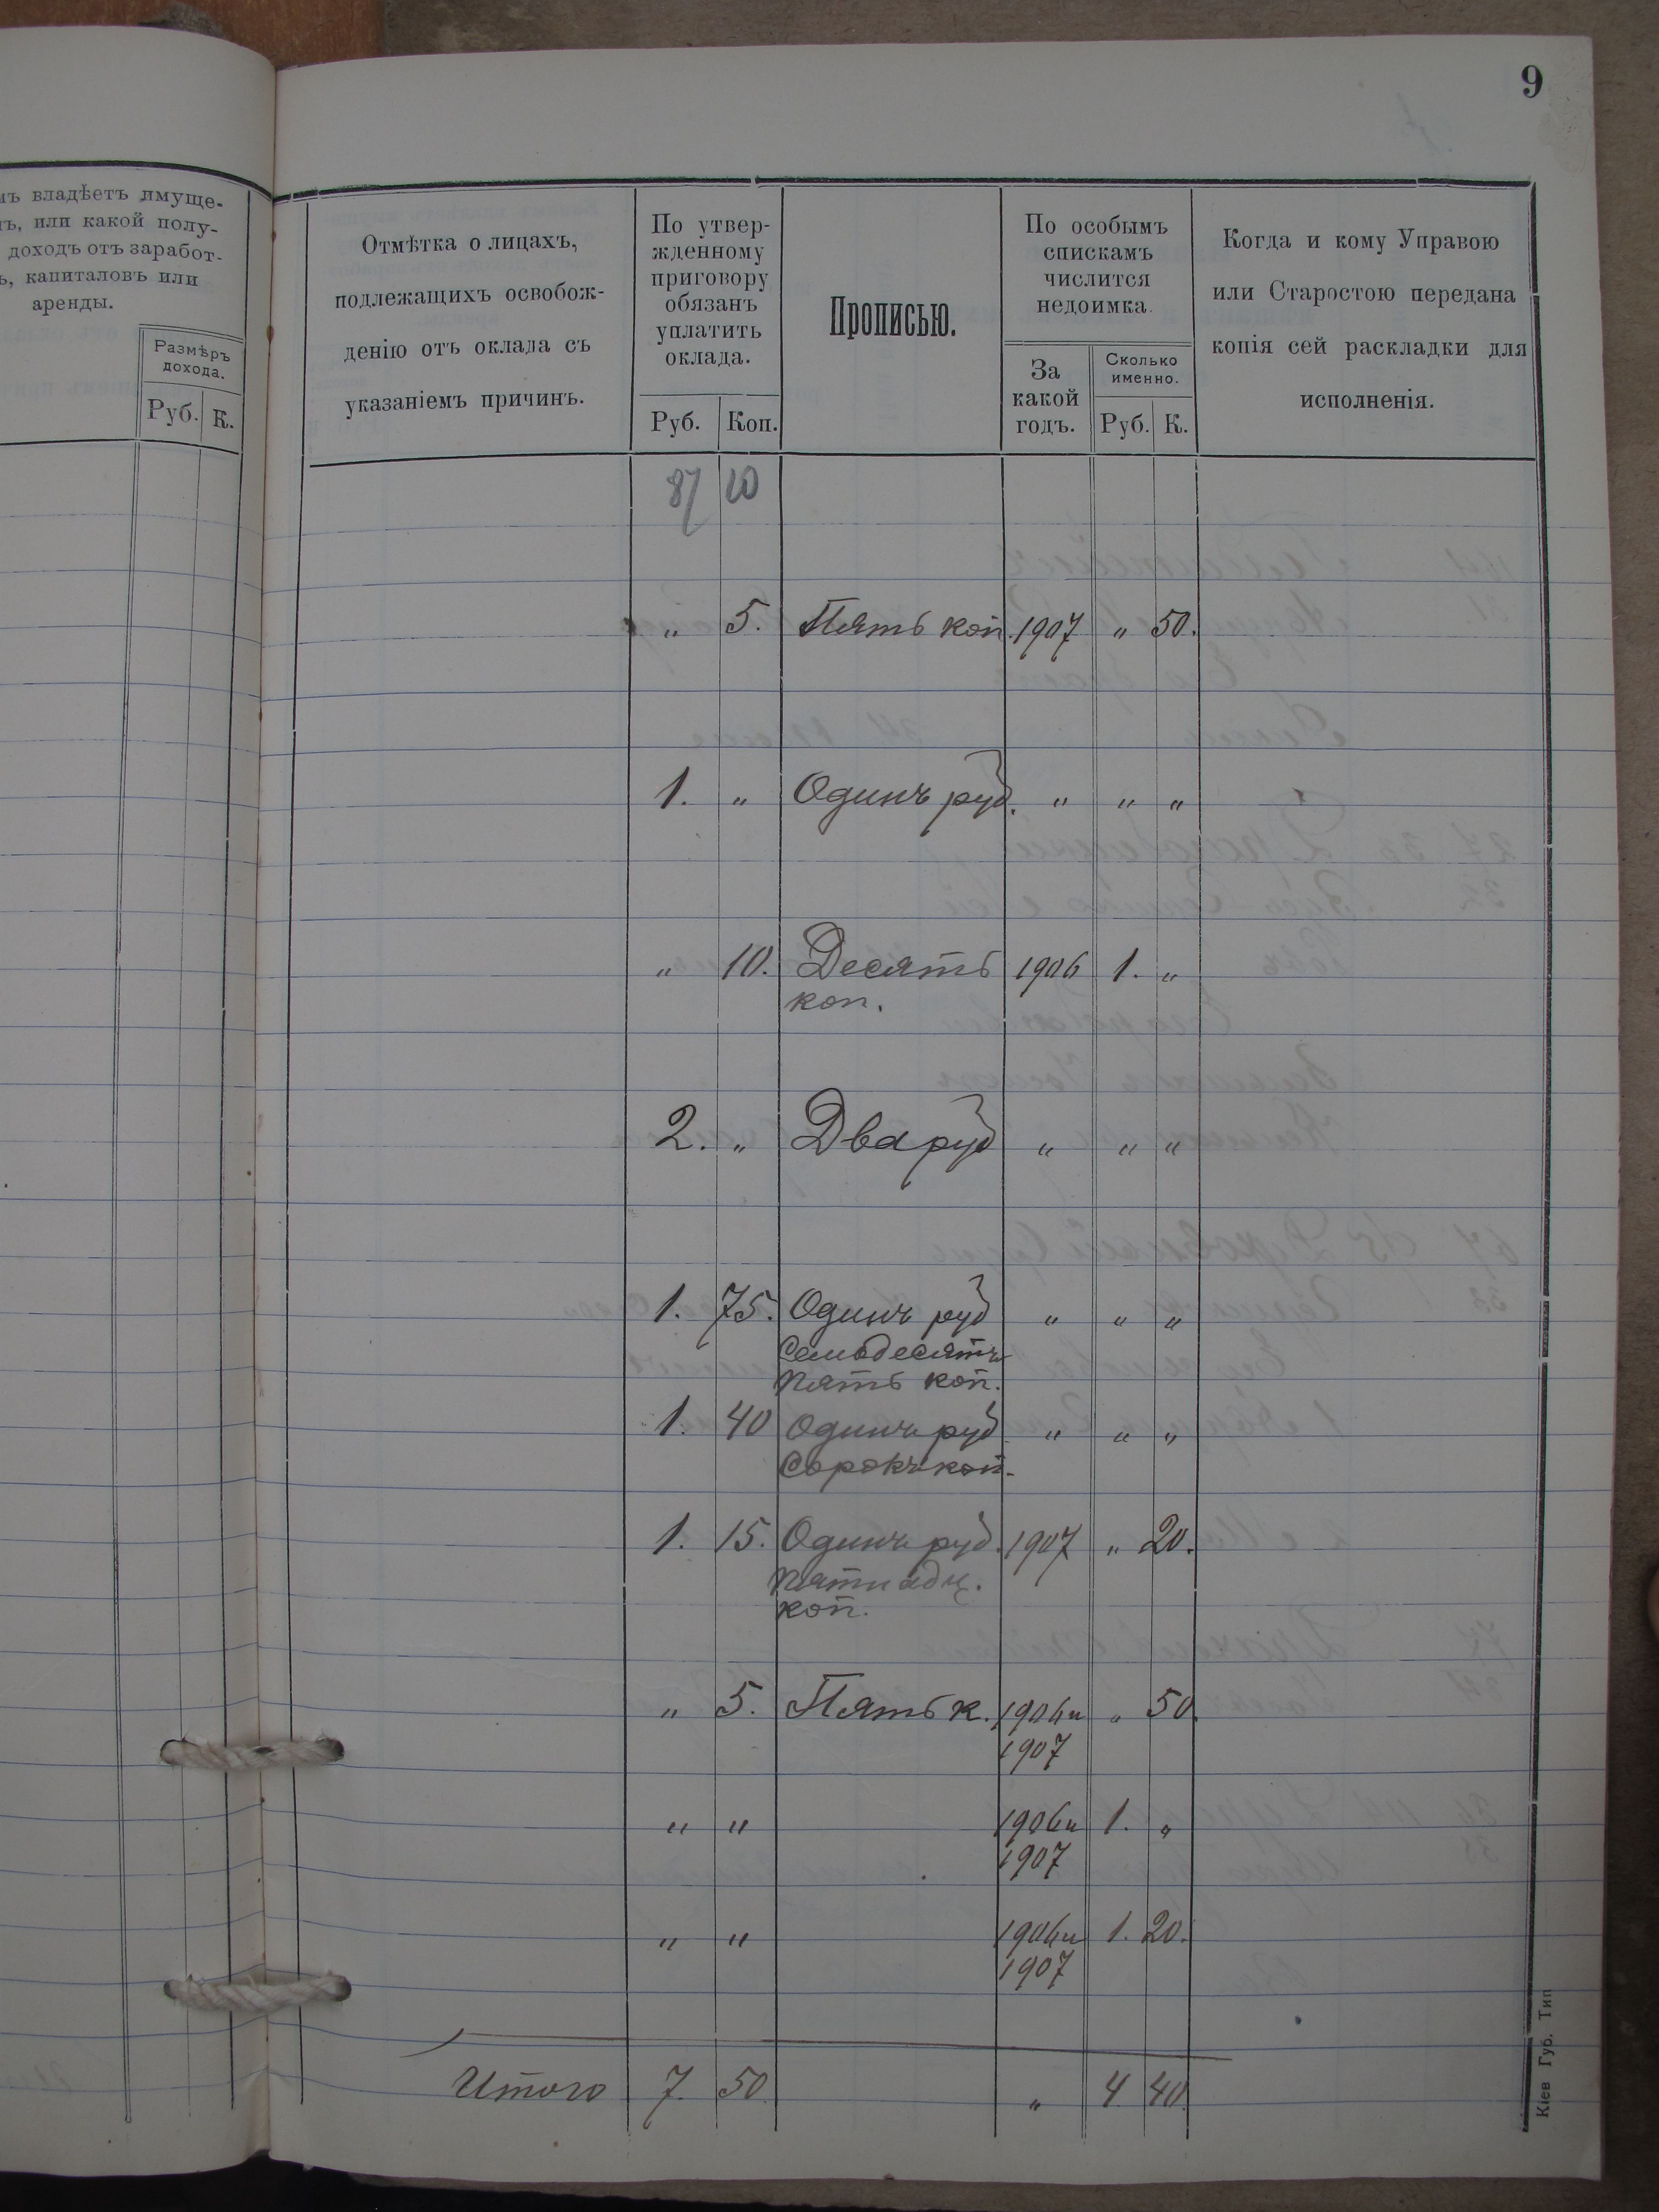 9
мъ владѣетъ имуще-
ъ, или какой полу-
доходъ отъ заработ-
ъ, капиталовъ или
аренды.
Размѣръ
дохода.
Руб. К.
Отмѣтка о лицахъ,
подлежащихъ освобож-
денію отъ оклада съ
указаніемъ причинъ.
По утвер-
жденному
приговору
обязанъ
уплатить
оклада.
Руб. Коп.
Прописью.
По особымъ
спискамъ
числится
недоимка.
За
какой
годъ.
Сколько
именно.
Руб. К.
Когда и кому Управою
или Старостою передана
копія сей раскладки для
исполненія.
87
„ 5. Пять коп. 1907 „ 50.
1. „ Одинъ руб. „ „ „
„ 10. Десять 1906 1. „
коп.
2. „ Два руб „ „ „
1. 75. Одинъ руб „ „ „
Семьдесятъ
пять коп.
1. 40 Одинъ руб „ „ „
Сорокъ коп.
1. 15. Одинъ руб. 1907 „ 20.
пятнадц.
коп.
„ 5. Пять к. 1906 и „ 50.
1907
„ „ 1906 и 1. „
1907
„ „ 1906 и 1. 20.
1907
Итого 7. 50 „ 4. 40.
Кіев Губ. Тип